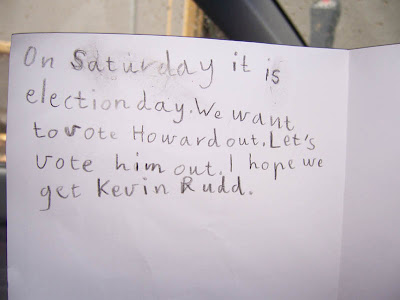 On Saturday it is
election day. We want
to vote Howard out. Let's
vote him out. I hope we
get Kevin Rudd.